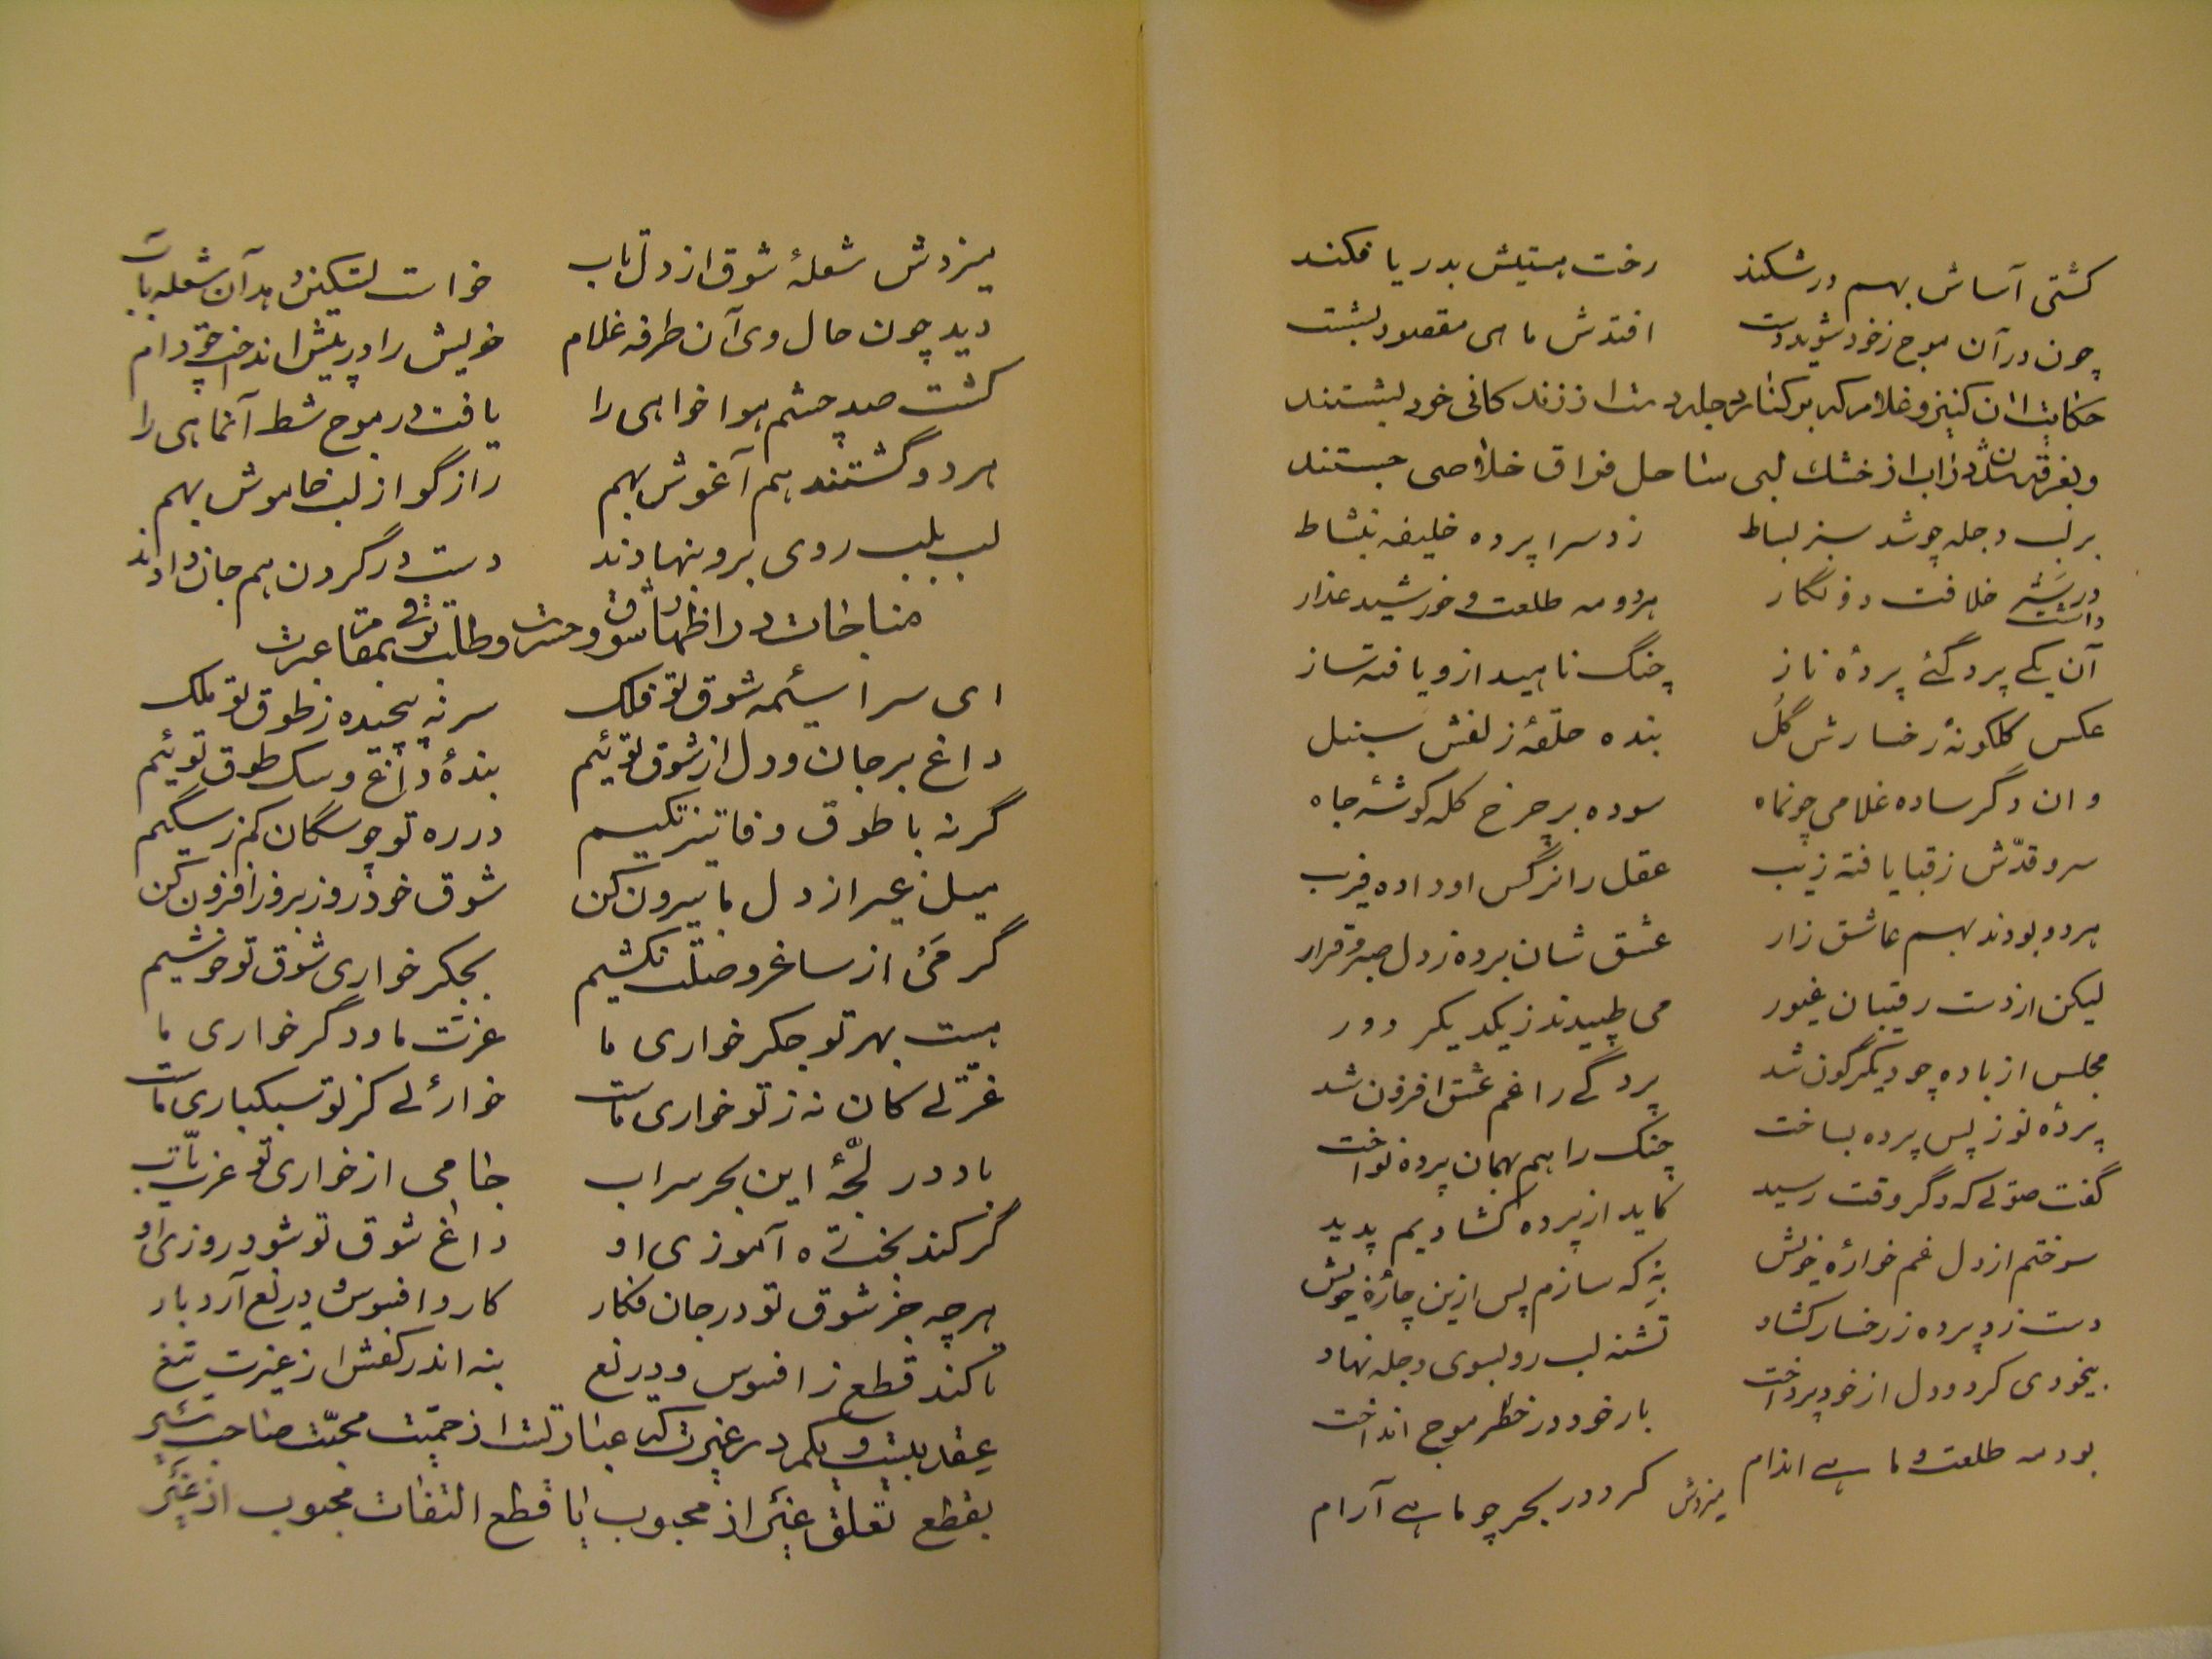 کشتی آساش بهم درشکند رخت هستیش بدریا فکند
چون در آن موج ز خود شوید دست افتدش ماهی مقصود بشست
حکایت آن کنیز و غلام که بر کنار دجله دست از زندگانی خود بشستند
و بغرقه شدن در آب از خشک لبی ساحل فراق خلاصی جستند
بر لب دجله چو شد سبز بساط زد سراپرده خلیفه بنشاط
داشت در ستر خلافت دو نگار هر دو مه طلعت و خورشید عذار
آن یکی پردگئ پردهٔ ناز چنگ ناهید ازو یافته ساز
عکس گلگونهٔ رخسارش گل بنده حلقهٔ زلفش سنبل
وان دگر ساده غلامی چو نماه سوده بر چرخ کله گوشهٔ جاه
سرو قدّش ز قبا یافته زیب عقل را نرگس او داده فریب
هر دو بودند بهم عاشق زار عشق شان برده ز دل صبر و قرار
لیکن از دست رقیبان غیور می طپیدند ز یکدیگر دور
مجلس از باده چو دیگرگون شد پردگی را غم عشق افزون شد
پردهٔ نو ز پس پرده بساخت چنگ را هم بهمان پرده نواخت
گفت صوتی که دگر وقت رسید کاید از پرده گشادیم پدید
سوختم از دل غم خوارهٔ خویش به که سازم پس ازین چارهٔ خویش
دست زد پرده ز رخسار کشاد تشنه لب رو بسوی دجله نهاد
بیخودی کرد و دل از خود پرداخت بار خود در خطر موج انداخت
بود مه طلعت و ماهی اندام کرد در بحر چو ماهی آرام
میزدش
میزدش شعلهٔ شوق از دل تاب خواست تسکین دهد آن شعله بآب
دید چون حال وی آن طرفه غلام خویش را در پیش انداخت چو دام
گشت صید چشم هوا خواهی را یافت در موج شط آنماهی را
هر دو گشتند هم آغوش بهم راز گو از لب خاموش بهم
لب بلب روی برو بنهادند دست در گردن هم جان دادند
مناجات در اظهار شوق و حسرت و طلب ترقی بمقام غیرت
ای سراسیمهٔ شوق تو فلک سر نه پیچیده ز طوق تو ملک
داغ بر جان و دل از شوق توئیم بندهٔ داغ و سگ طوق توئیم
گر نه با طوق وفا تیزتگیم در ره تو چو سگان کم ز سگیم
میل غیر از دل ما بیرون کن شوق خود روز بروز افزون کن
گر مئ از ساغر وصلت نکشیم بجگر خواری شوق تو خوشیم
هست بهر تو جگر خواری ما عزت ما و دگر خواری ما
عزتی کان نه ز تو خواری ماست خوارئی کز تو سبکباری ماست
باد در لجّهٔ این بحر سراب جامی از خواری تو عزت یاب
گر کند بخت ره آموزی او داغ شوق تو شود روزی او
هر چه جز شوق تو در جان فکار کارد افسوس و دریغ آرد بار
تا کند قطع ز افسوس و دریغ بنه اندر کفش از غیرت تیغ
عقد بیست و یکم در غیرت که عبارتست از حمیّت محبّت صاحب سیر
بقطع تعلق غیر از محبوب یا قطع التفات محبوب از غیر